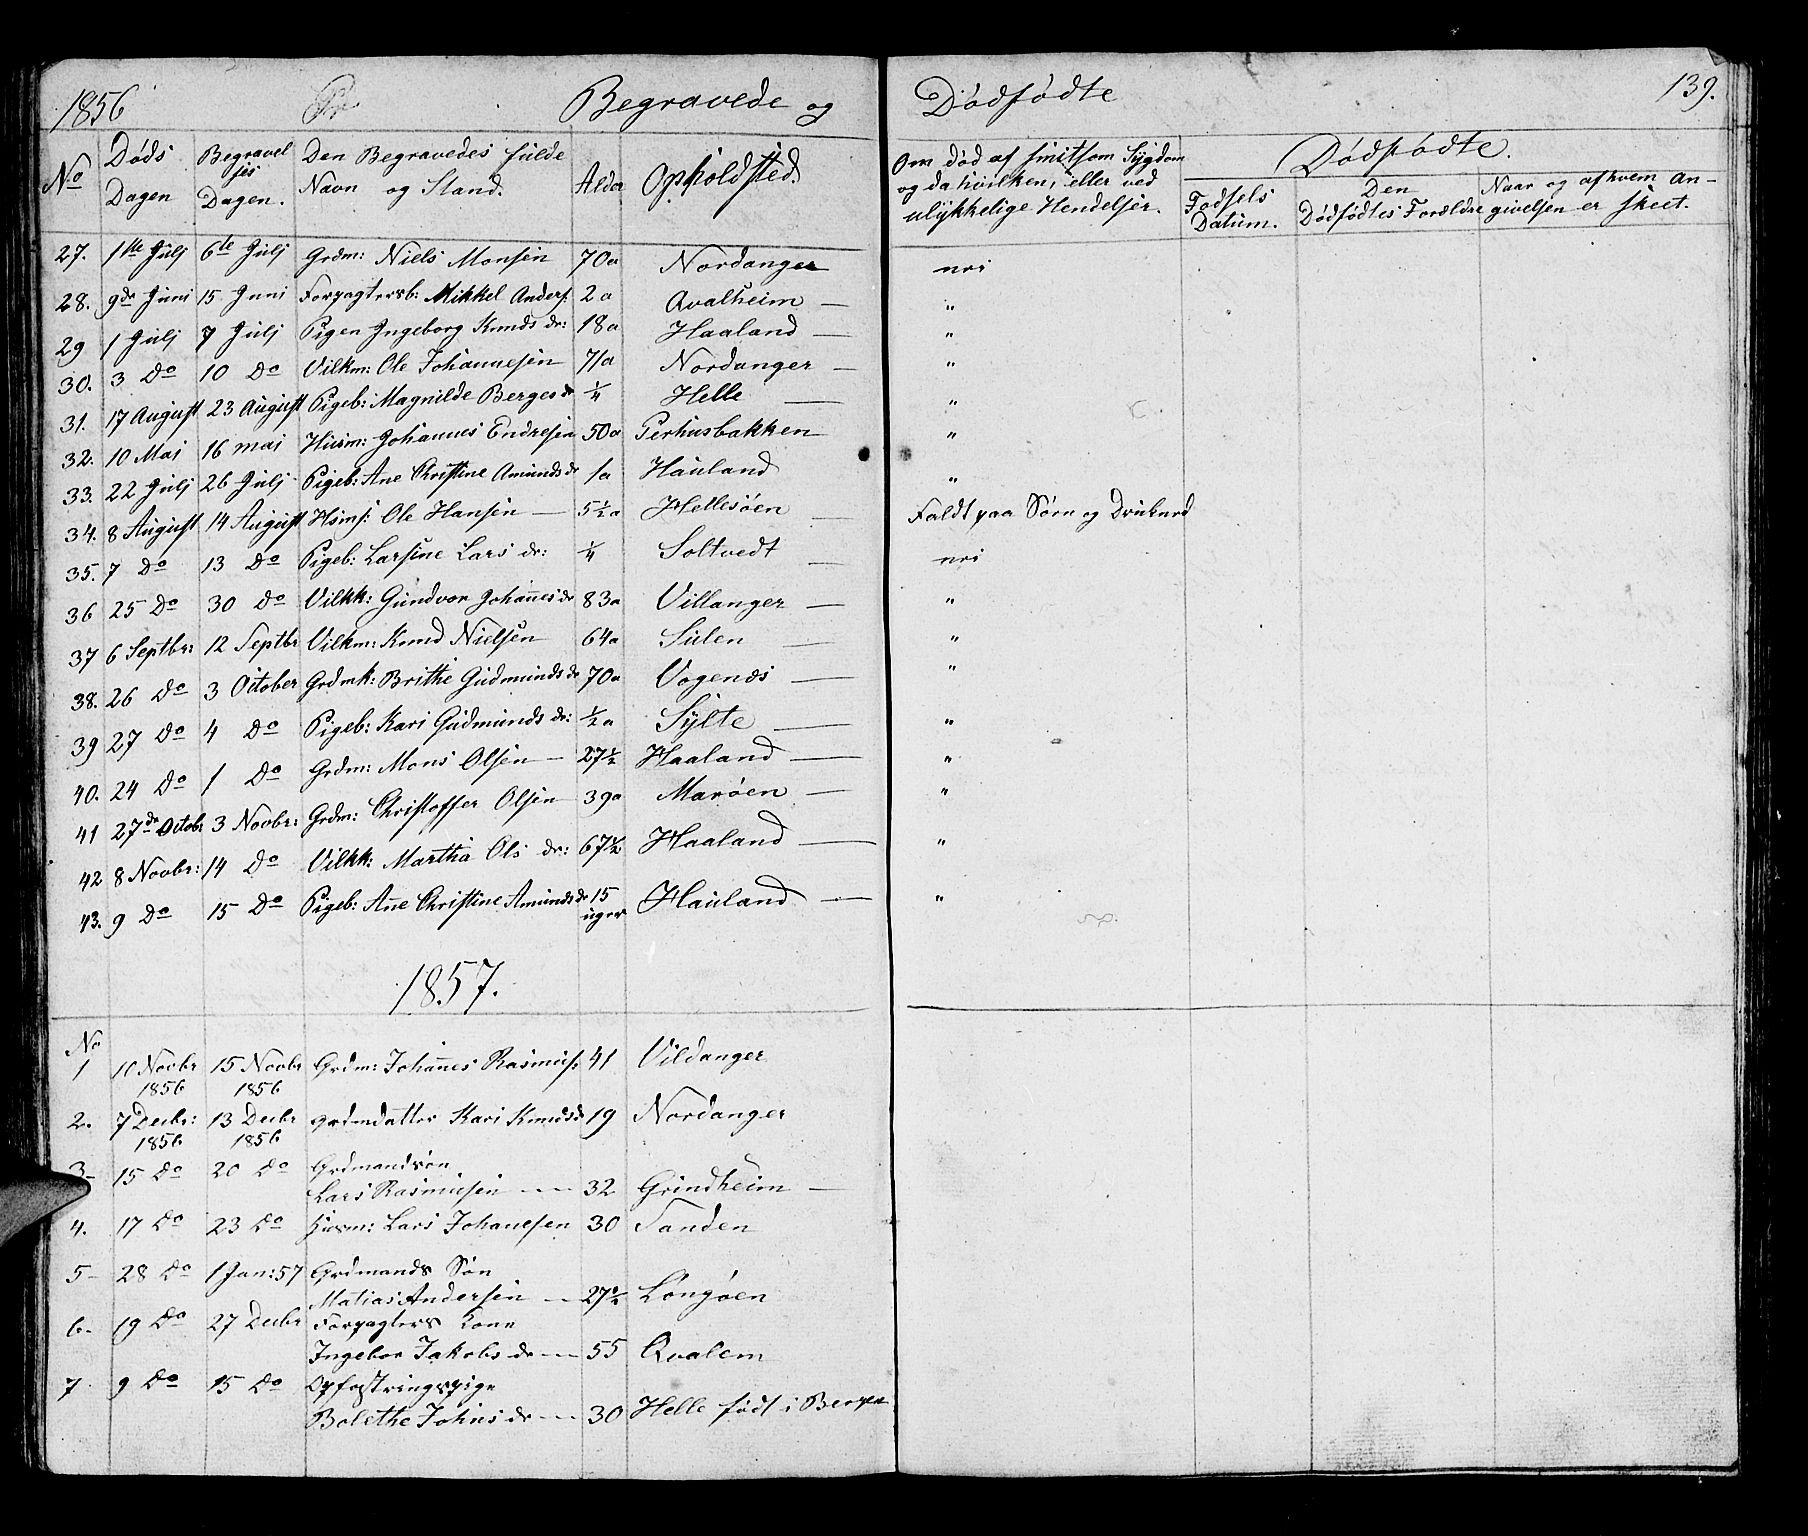 1856 Begravede og Dødfødte 139.
No Døds Dagen Begravelses Dagen. Den Begravedes fulde Navn og Stand. Alder Opholdsted. Om død af smitsom Sygdom og da hvilken, eller ved ulykkelige Hendelser. Dødfødte.
Fødsels Datum. Den Dødfødtes Forældre Naar og af hvem Angivelsen er skeet.
27. 1ste Julj 6te Julj Grdm: Niels Monsen 70a Nordanger nei
28. 9de Juni 15 Juni Forpagtersb: Mikkel Anders: 2a Qvalheim — "
29 1 Julj 7 Julj Pigen Ingeborg Knuds dr: 18a Haaland — "
30. 3 Do 10 Do Vilkm: Ole Johannesen 71a Nordanger — "
31. 17 August 23 August Pigeb: Magnilde Berges dr ¼ Helle — "
32. 10 Mai 16 mai Husm: Johannes Endresen 50a Perhusbakken "
33. 22 Julj 26 Julj Pigeb: Ane Christine Amunds dr 1a Hauland "
34. 8 August 14 August Hsms: Ole Hansen — 5½a Hellesøen — Faldt paa Søen og Druknet
35. 7 Do 13 Do Pigeb: Larsine Lars dr: ¼ Soltvedt — nei
36 25 Do 30 Do Vilkk: Gundvor Johanes dr 83a Villanger — "
37 6 Septbr: 12 Septbr Vilkm: Knud Nielsen 64a Sulen — "
38. 26 Do 3 October Grdmk: Brithe Gudmunds dr 70a Vogenes — "
39 27 Do 4 Do Pigeb: Kari Gudmunds dr: ½a Sylte — "
40. 24 Do 1 Do Grdm: Mons Olsen — 27½ Haaland — "
41 27de Octobr 3 Novbr: Grdm: Christoffer Olsen 39a Marøen — "
42 8 Novbr: 14 Do Vilkk: Martha Ols dr: 67½ Haaland — "
43. 9 Do 15 Do Pigeb: Ane Christine Amunds dr 15 uger Hauland — "
1857.
No
1 10 Novbr 1856 15 Novbr 1856 Grdm: Johanes Rasmus: 41 Vildanger
2. 7 Decbr: 1856 13 Decbr 1856 grdmdatter Kari Knudsdr 19 Nordanger
3- 15 Do 20 Do Grdmandsøn
Lars Rasmusen — 32 Grindheim —
4. 17 Do 23 Do Husm: Lars Johanesen 30 Sanden
5- 28 Do 1 Jan: 57 Grdmands Søn
Matias Andersen — 27½ Longøen
6. 19 Do 27 Decbr Forpagters Kone
Ingebor Jakobs dr — 55 Qvalem
7 9 Do 15 Do Opfostringspige
Bolethe Johns dr — 30 Helle født i Bergen